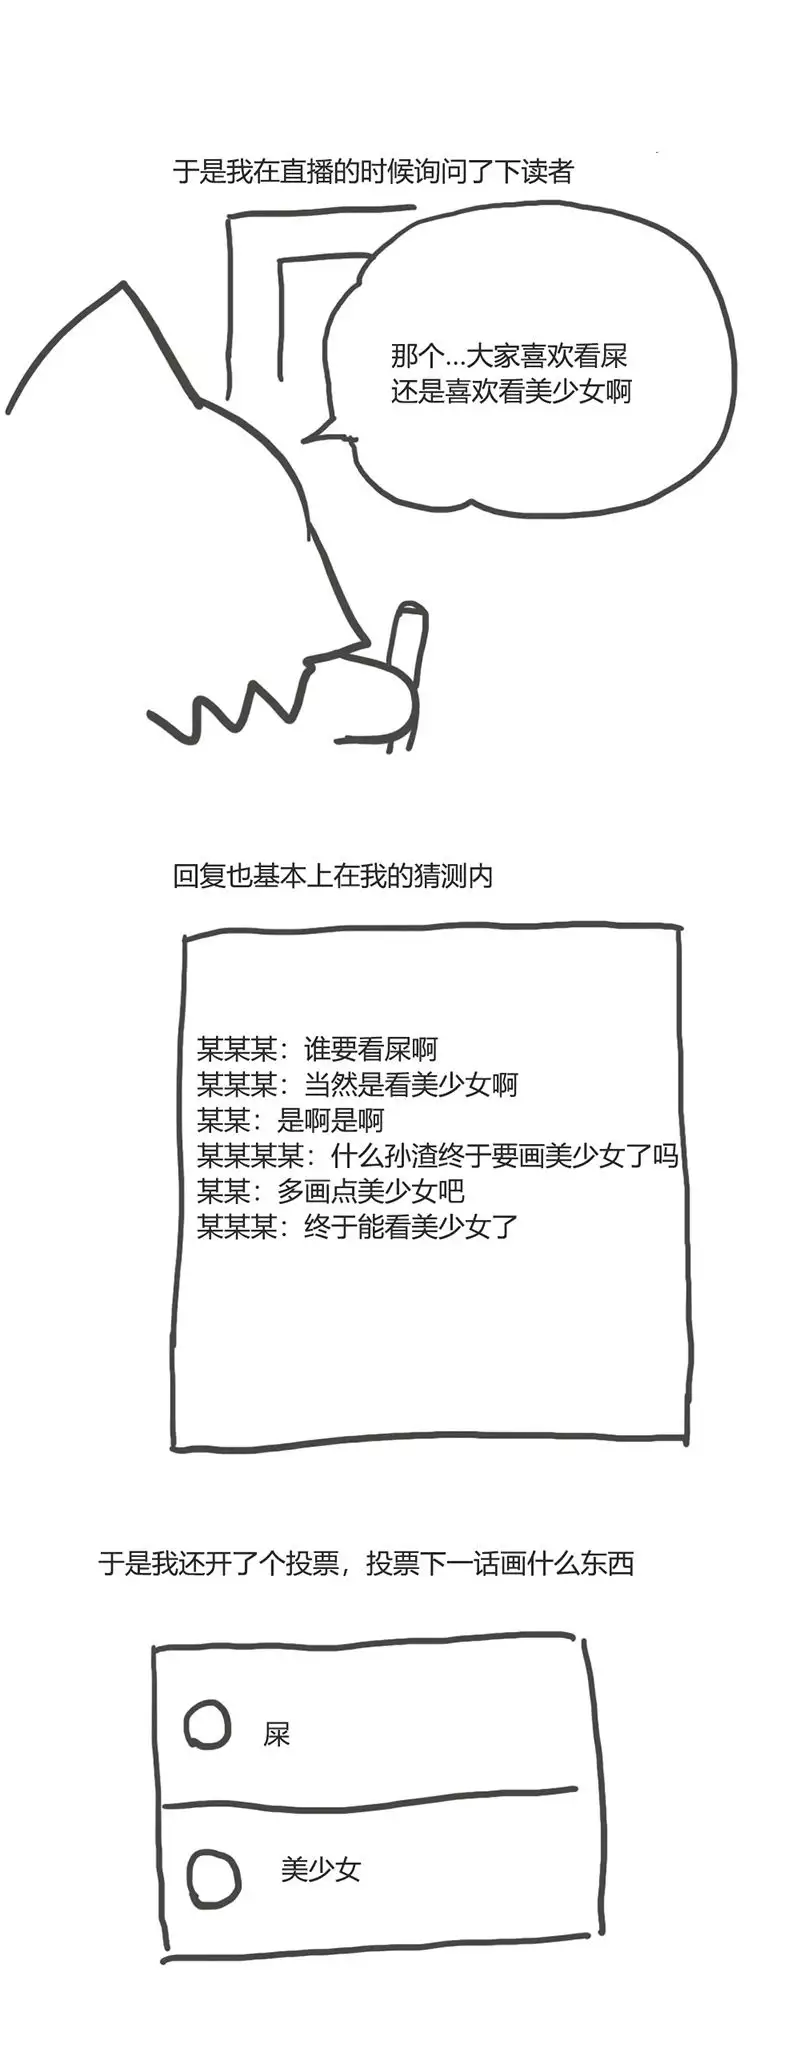 于是我在直播的时候询问了下读者
那个...大家喜欢看屎
还是喜欢看美少女啊
回复也基本上在我的猜测内
某某某：谁要看屎啊
某某某：当然是看美少女啊
某某：是啊是啊
某某某某：什么孙渣终于要画美少女了吗
某某：多画点美少女吧
某某某：终于能看美少女了
于是我还开了个投票，投票下一话画什么东西
屎
美少女